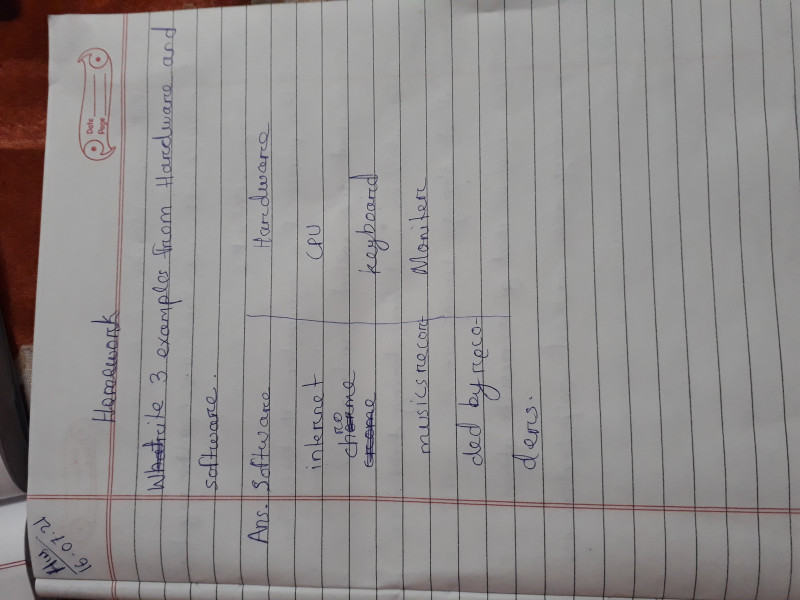 16.07.21
Date
Page
Homework
Write 3 examples from Hardware and
software.
Ans. Software Hardware
internet CPU
chrome keyboard
musicsrecor- Moniter
ded by reco-
ders.